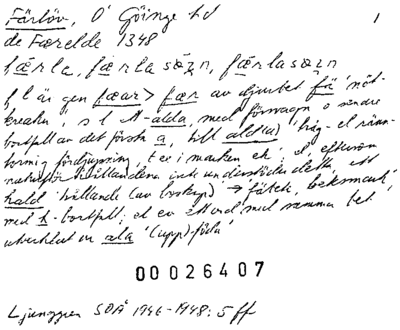 Färlöv, Ö Göinge hd 1
de Færelde 1348
færla, færlasǫzn, færlasozn
f l är gen fæar > fær av djurbet fä 'nöt-
kreatur', s l A- alda, med försvagn o senare
bortfall av det första a, till ald(a) 'tråg- el ränn-
formig fördjupning, t ex i marken etc' el eftersom
naturförhållandena inte understöder detta ett
hald 'hållande (av boskap)' → 'fätek, betesmark',
med h-bortfall; el ev ett ord med samma bet,
utvecklat ur ala '(upp)föda'
00026407
Ljunggren SOÅ 1946-1948: 5 ff